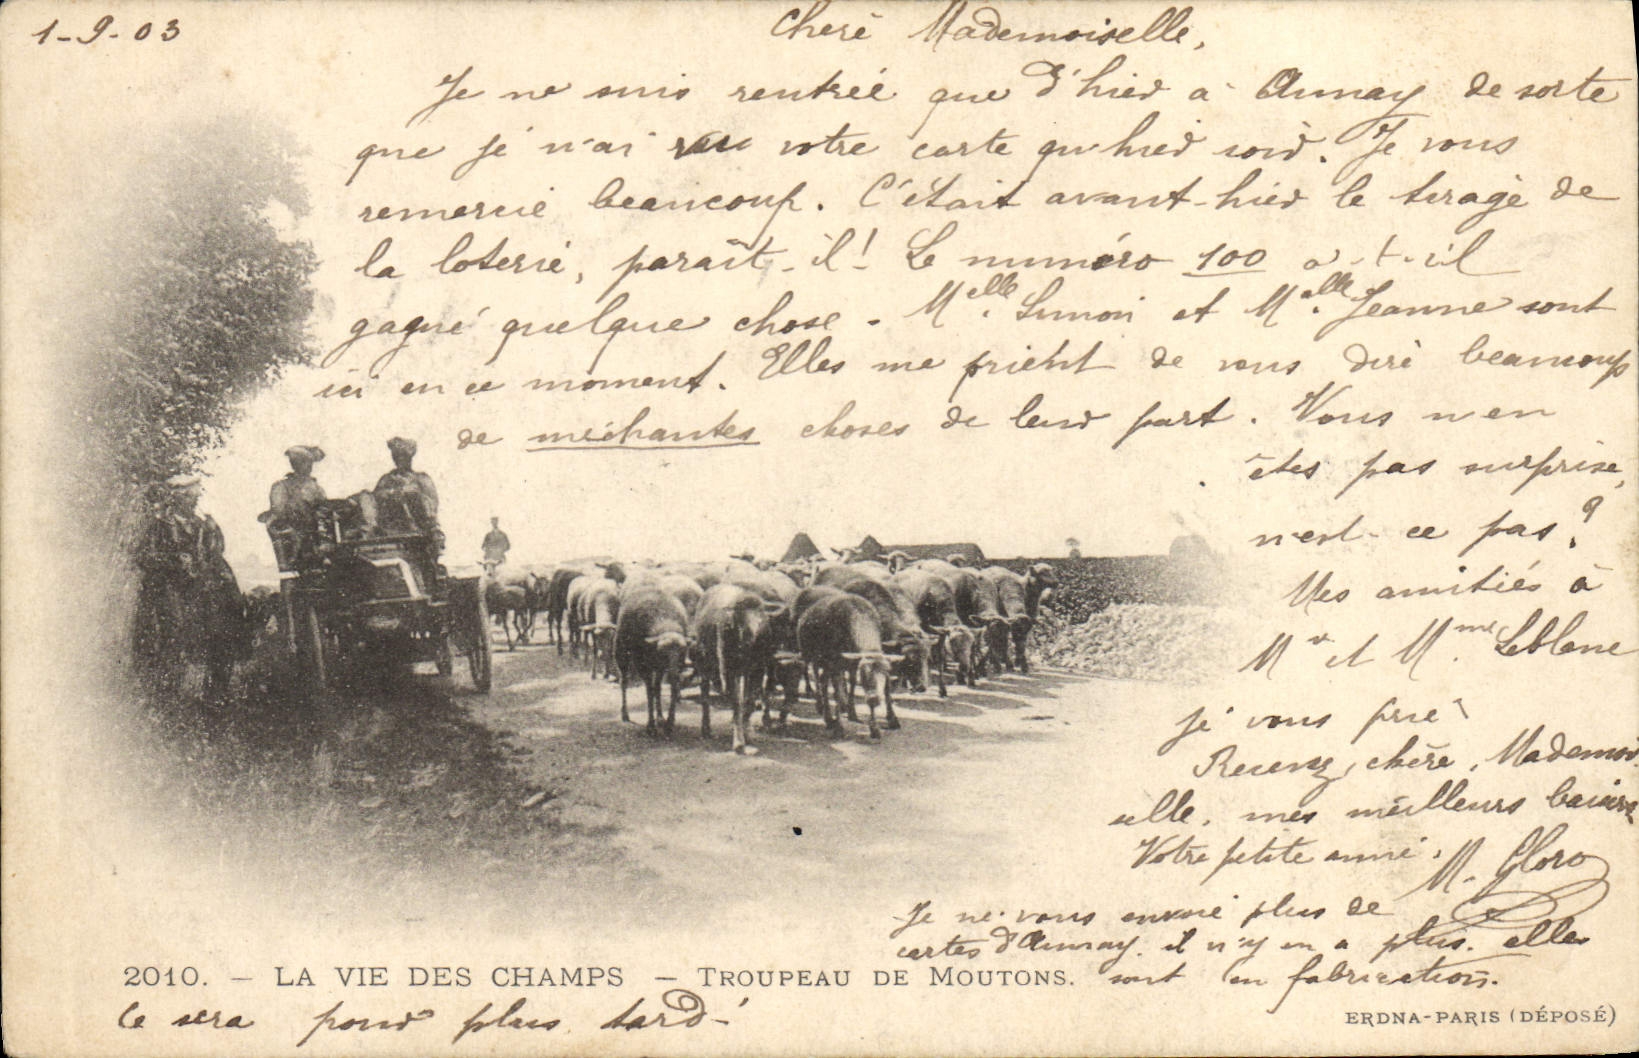 1-9-03
Chère Mademoiselle,
Je ne suis rentrée que d'hier à Aunay de sorte
que je n'ai vu votre carte qu'hier soir. Je vous
remercie beaucoup. C'était avant-hier le tirage de
la loterie, paraît-il! Le numéro 100 a-t-il
gagné quelque chose. Melle. Simon et Melle. Jeanne sont
ici en ce moment. Elles me prient de vous dire beaucoup
de méchantes choses de leur part. Vous n'en
êtes pas surprise,
n'est-ce pas?
Mes amitiés à
Mr et Mme. Leblanc
je vous prie
Recevez, chère, Mademoi
selle, mes meilleurs baisers
Votre petite amie.
M.
Je ne vous envoie plus de
cartes d'Aunay. il n'y en a plus. elles
sont en fabrication.
2010. — LA VIE DES CHAMPS — TROUPEAU DE MOUTONS.
ce sera pour plus tard
ERDNA-PARIS (DÉPOSÉ)